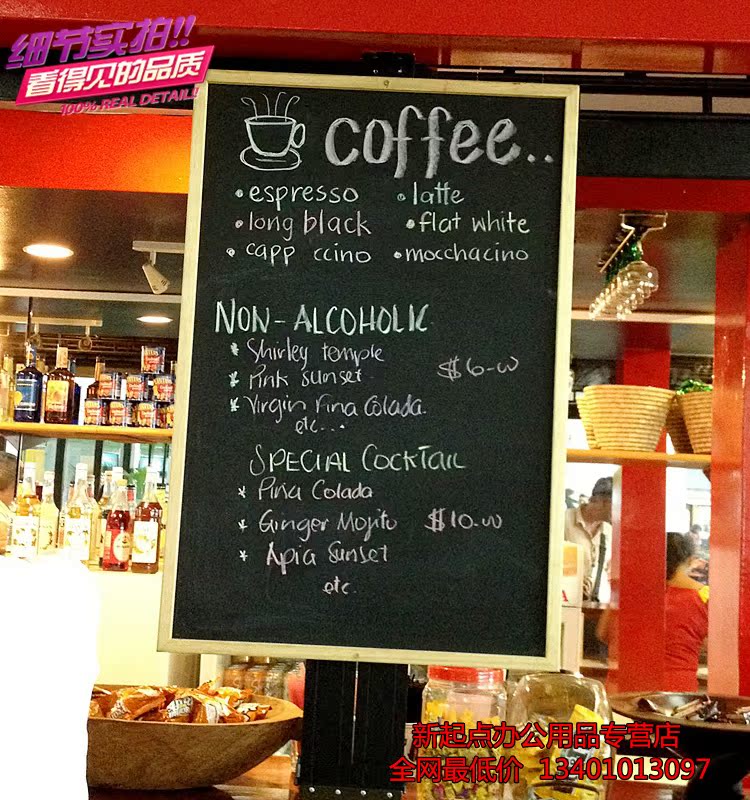 细节实拍!!
看得见的品质
100% REAL DETAIL!!
coffee..
• espresso • latte
• long black • flat white
• capp ccino • mocchacino
NON-ALCOHOLIC
* Shirley temple
* Pink Sunset $6-00
* Virgin Pina Colada.
etc...
SPECIAL COCKTAIL
* Piña Colada
* Ginger Mojito $10.00
* Apia Sunset
etc.
新起点办公用品专营店
全网最低价 13401013097